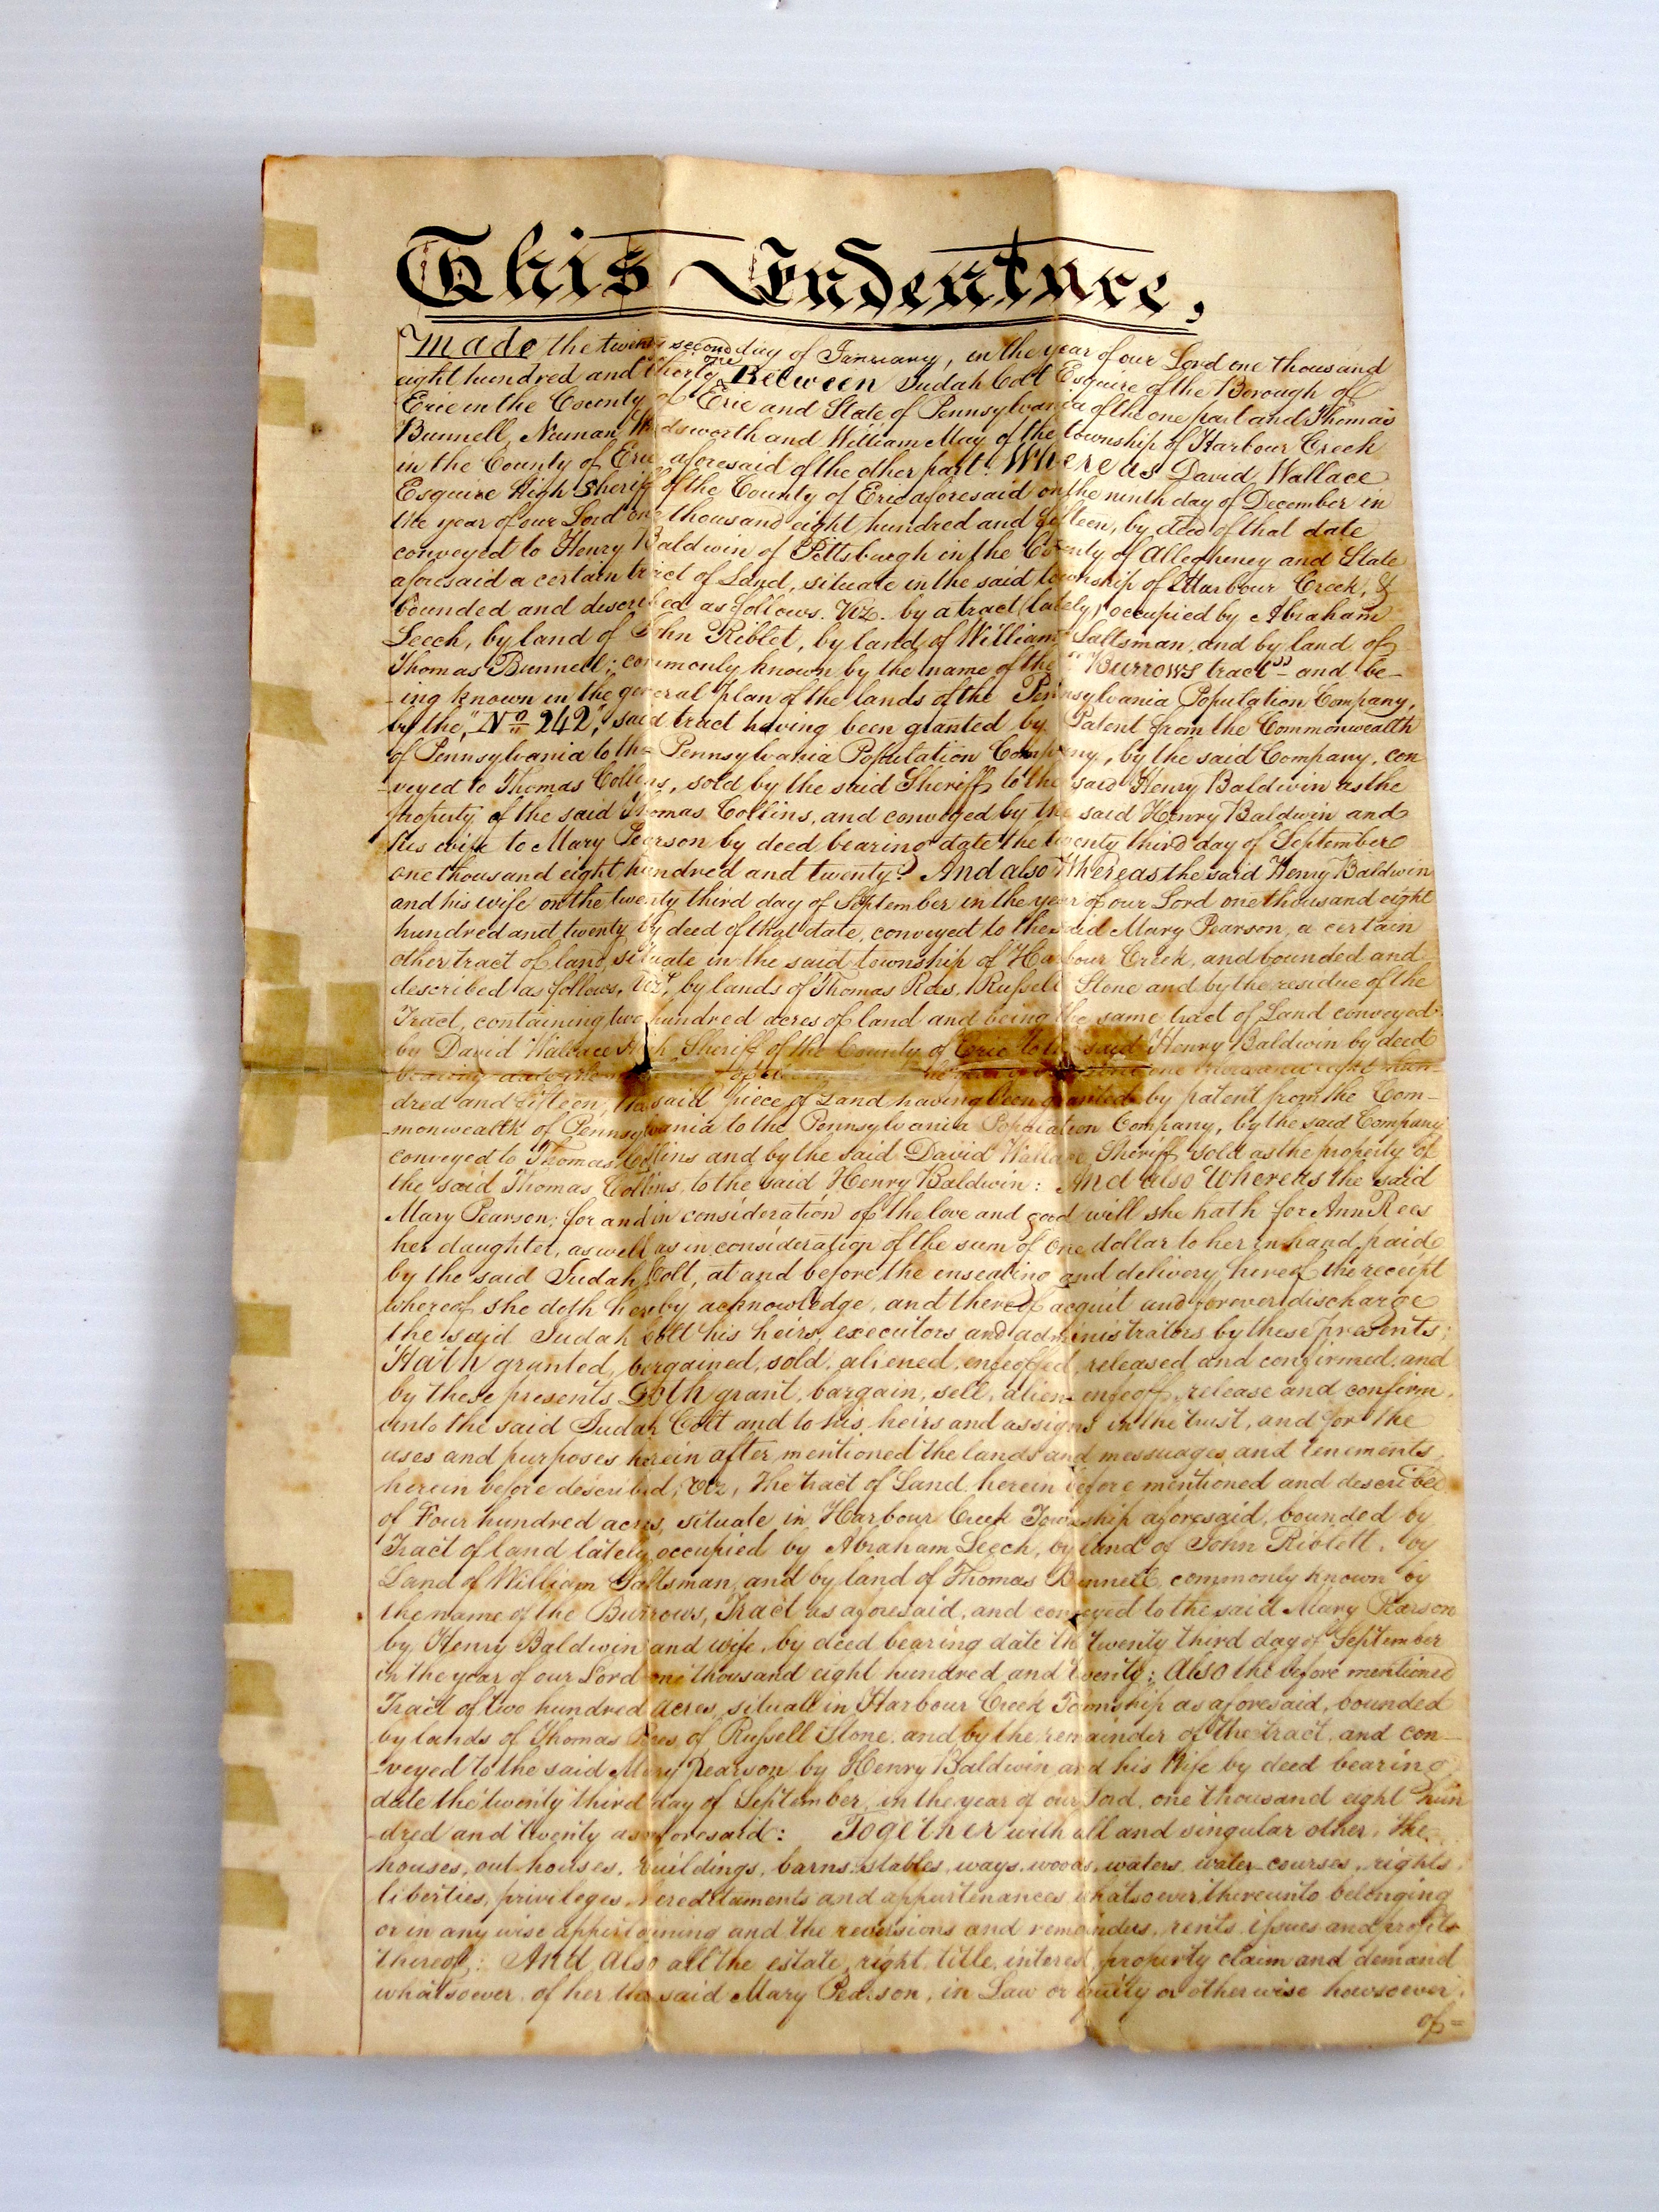 This Indenture,
Made the twenty second day of January, in the year of our Lord one thousand
one
eight hundred and thirty Between Judah Colt Esquire of the Borough of
Erie in the County of Erie and State of Pennsylvania of the one part and Thomas
Bunnell, Numan Wadsworth and William May of the township of Harbour Creek
in the County of Erie aforesaid of the other part. Whereas David Wallace
Esquire High Sheriff of the County of Erie aforesaid on the ninth day of December in
the year of our Lord one thousand eight hundred and fifteen, by deed of that date
conveyed to Henry Baldwin of Pittsburgh in the County of Allegheney and State
aforesaid a certain tract of Land, situate in the said township of Harbour Creek, &
bounded and described as follows. Viz. by a tract (lately) occupied by Abraham
Leech, by land of John Riblet, by land of William Saltsman, and by land of
Thomas Bunnell; commonly known by the name of the "Burrows tract" - and be-
-ing known in the general plan of the lands of the Pennsylvania Population Company,
by the, "No 242," said tract having been granted by Patent from the Commonwealth
of Pennsylvania to the Pennsylvania Population Company, by the said Company, con
-veyed to Thomas Collins, sold by the said Sheriff to the said Henry Baldwin as the
property of the said Thomas Collins, and conveyed by the said Henry Baldwin and
his wife to Mary Pearson by deed bearing date the twenty third day of September
one thousand eight hundred and twenty: And also Whereas the said Henry Baldwin
and his wife on the twenty third day of September in the year of our Lord one thousand eight
hundred and twenty by deed of that date, conveyed to the said Mary Pearson, a certain
other tract of land, situate in the said township of Harbour Creek, and bounded and
described as follows, Viz, by lands of Thomas Rees, Russell Stone and by the residue of the
Tract, containing two hundred acres of land and being the same tract of Land conveyed
by David Wallace High Sheriff of the County of Erie to the said Henry Baldwin by deed
bearing date the one thousand eight hun-
dred and fifteen; the said piece of Land having been granted by patent from the Com-
-monwealth of Pennsylvania to the Pennsylvania Population Company, by the said Company
conveyed to Thomas Collins and by the said David Wallace Sheriff sold as the property of
the said Thomas Collins, to the said Henry Baldwin: And also Whereas the said
Mary Pearson; for and in consideration of the love and good will she hath for Ann Rees
her daughter, as well as in consideration of the sum of one dollar to her in hand paid
by the said Judah Colt, at and before the ensealing and delivery hereof the receipt
whereof she doth hereby acknowledge, and thereof acquit and forever discharge
the said Judah Colt his heirs, executors and administrators by these presents;
Hath granted, bargained, sold, aliened, enfeoffed, released and confirmed, and
by these presents Doth grant, bargain, sell, alien, enfeoff, release and confirm,
unto the said Judah Colt and to his heirs and assigns in the trust, and for the
uses and purposes herein after mentioned the lands and messuages and tenements
herein before described; Viz, the tract of Land herein before mentioned and described
of Four hundred acres, situate in Harbour Creek Township aforesaid, bounded by
Tract of land lately occupied by Abraham Leech, by land of John Riblett, by
Land of William Saltsman, and by land of Thomas Bunnell, commonly known by
the name of the Burrows, Tract as aforesaid, and conveyed to the said Mary Pearson
by Henry Baldwin and wife, by deed bearing date the twenty third day of September
in the year of our Lord one thousand eight hundred and twenty; Also the before mentioned
Tract of two hundred acres, situate in Harbour Creek Township as aforesaid, bounded
by lands of Thomas Rees, of Russell Stone, and by the remainder of the tract, and con-
-veyed to the said Mary Pearson by Henry Baldwin and his Wife by deed bearing
date the twenty third day of September, in the year of our Lord, one thousand eight hun
-dred and twenty as aforesaid: Together with all and singular other, the
houses, out-houses, buildings, barns, stables, ways, woods, waters, water-courses, rights,
liberties, privileges, hereditaments and appurtenances, whatsoever thereunto belonging
or in any wise appertaining and the reversions and remainders, rents, issues and profits
thereof: And also all the estate, right, title, interest, property claim and demand
whatsoever, of her the said Mary Pearson, in Law or equity or otherwise howsoever,
of=